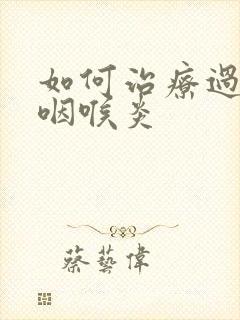 如何治療過
咽喉炎
蔡藝偉